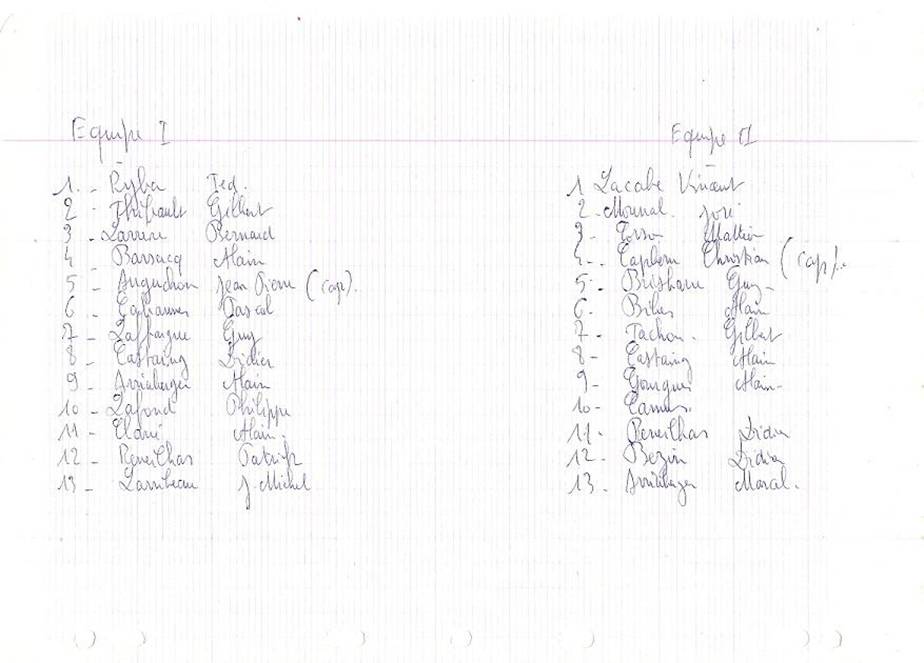 Equipe I
1. - Ryba Ted.
2 - Thibault Gilbert
3 - Larrere Bernard
4 - Barsacq Alain
5 - Jean Pierre (cap).
6 - Pascal
7 - Laffargue Guy
8 - Castaing Didier
9 - Alain
10 - Lafond Philippe
11 - Alain.
12 - Reveilhas Patrick
13 - Larribeau J. Michel
Equipe II
1 Lacabe Vincent
2. José
3 - Mattieu
4 - Christian (cap).
5 - Guy
6. Alain
7 - Tachon. Gilbert
8 - Castaing Alain
9 - Gourgues Alain
10 - Camus.
11. Reveilhas Didier
12 - Bezin Didier
13.